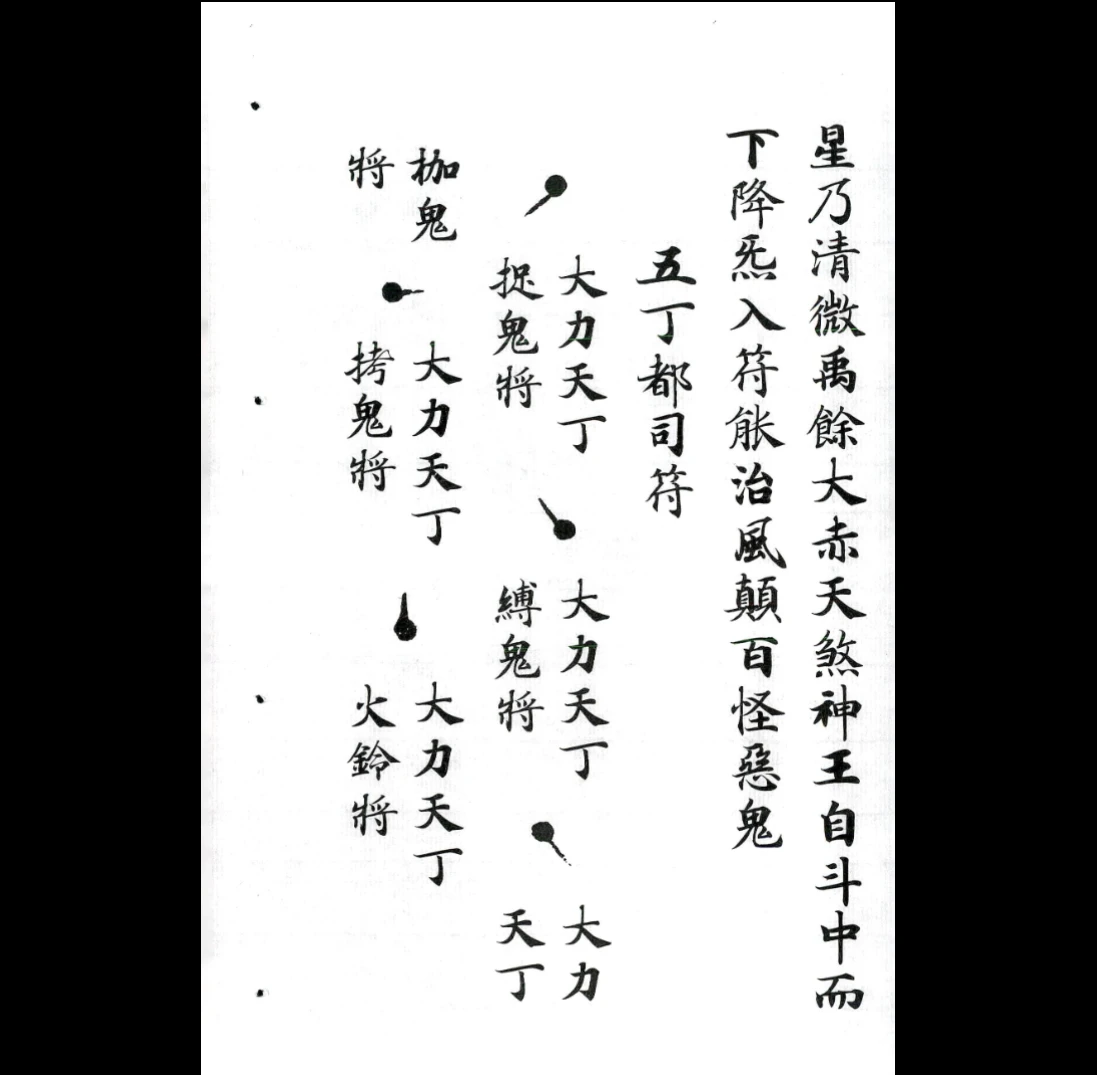 星乃清微禹餘大赤天煞神王自斗中而
下降炁入符能治風顛百怪惡鬼
五丁都司符
大力天丁
捉鬼將
大力天丁
縛鬼將
大力
天丁
枷鬼
將
大力天丁
拷鬼將
大力天丁
火鈴將